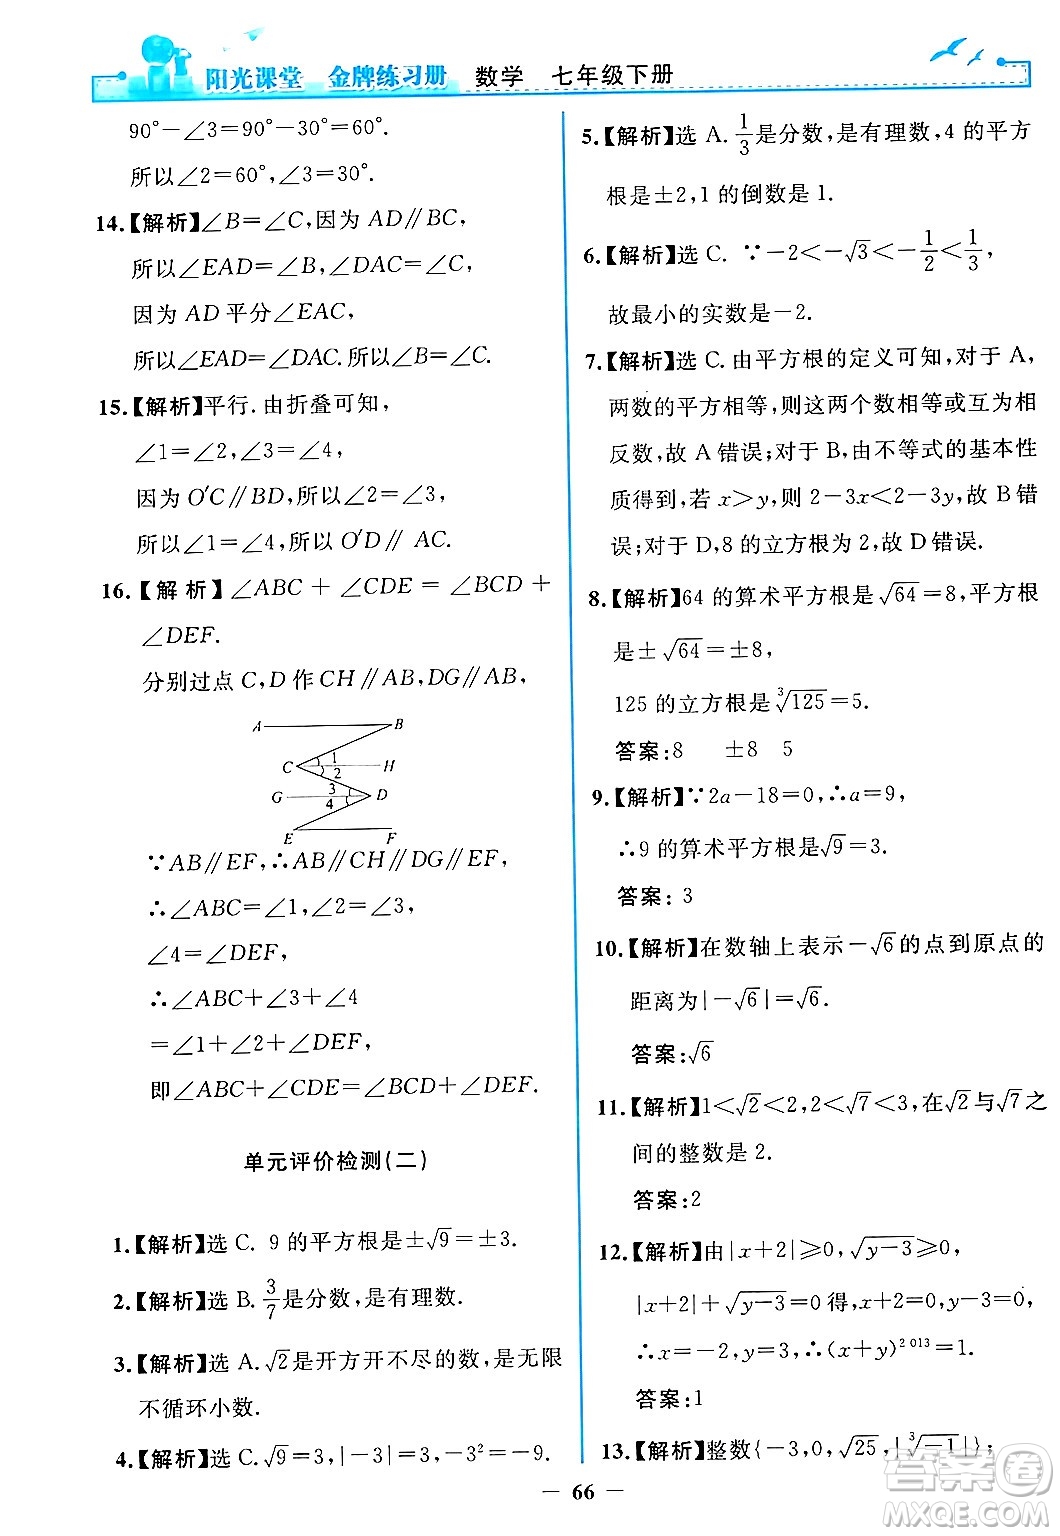 阳光课堂 金牌练习册 数学 七年级下册
90°－∠3＝90°－30°＝60°.
所以∠2＝60°,∠3＝30°.
14.【解析】∠B＝∠C,因为 AD∥BC,
所以∠EAD＝∠B,∠DAC＝∠C,
因为 AD 平分∠EAC,
所以∠EAD＝∠DAC.所以∠B＝∠C.
15.【解析】平行.由折叠可知,
∠1＝∠2,∠3＝∠4,
因为 O′C∥BD,所以∠2＝∠3,
所以∠1＝∠4,所以 O′D∥ AC.
16.【解 析】∠ABC ＋ ∠CDE ＝ ∠BCD ＋
∠DEF.
分别过点 C,D 作 CH∥AB,DG∥AB,
A B
C 1 2 H
G 3 4 D
E F
∵AB∥EF,∴AB∥CH∥DG∥EF,
∴∠ABC＝∠1,∠2＝∠3,
∠4＝∠DEF.
∴∠ABC＋∠3＋∠4
＝∠1＋∠2＋∠DEF,
即∠ABC＋∠CDE＝∠BCD＋∠DEF.
单元评价检测(二)
1.【解析】选 C. 9 的平方根是±√9＝±3.
2.【解析】选 B. 3/7 是分数,是有理数.
3.【解析】选 A.√2是开方开不尽的数,是无限
不循环小数.
4.【解析】选 C. √9＝3,|－3|＝3,－3²＝－9.
5.【解析】选 A. 1/3 是分数,是有理数,4 的平方
根是±2,1 的倒数是 1.
6.【解析】选 C. ∵－2＜－√3＜－1/2＜1/3,
故最小的实数是－2.
7.【解析】选 C.由平方根的定义可知,对于 A,
两数的平方相等,则这两个数相等或互为相
反数,故 A 错误;对于 B,由不等式的基本性
质得到,若 x＞y,则 2－3x＜2－3y,故 B 错
误;对于 D,8 的立方根为 2,故 D 错误.
8.【解析】64 的算术平方根是√64＝8,平方根
是±√64＝±8,
125 的立方根是∛125＝5.
答案:8 ±8 5
9.【解析】∵2a－18＝0,∴a＝9,
∴9 的算术平方根是√9＝3.
答案: 3
10.【解析】在数轴上表示－√6的点到原点的
距离为|－√6|＝√6.
答案:√6
11.【解析】1＜√2＜2,2＜√7＜3,在√2与√7之
间的整数是 2.
答案:2
12.【解析】由|x＋2|⩾0,√(y－3)⩾0,
|x＋2|＋√(y－3)＝0 得 x＋2＝0,y－3＝0,
∴x＝－2,y＝3,∴(x＋y)²⁰¹³＝1.
答案:1
13.【解析】整数{－3,0,√25,|∛－1|};
— 66 —
答案圈
MXQE.COM